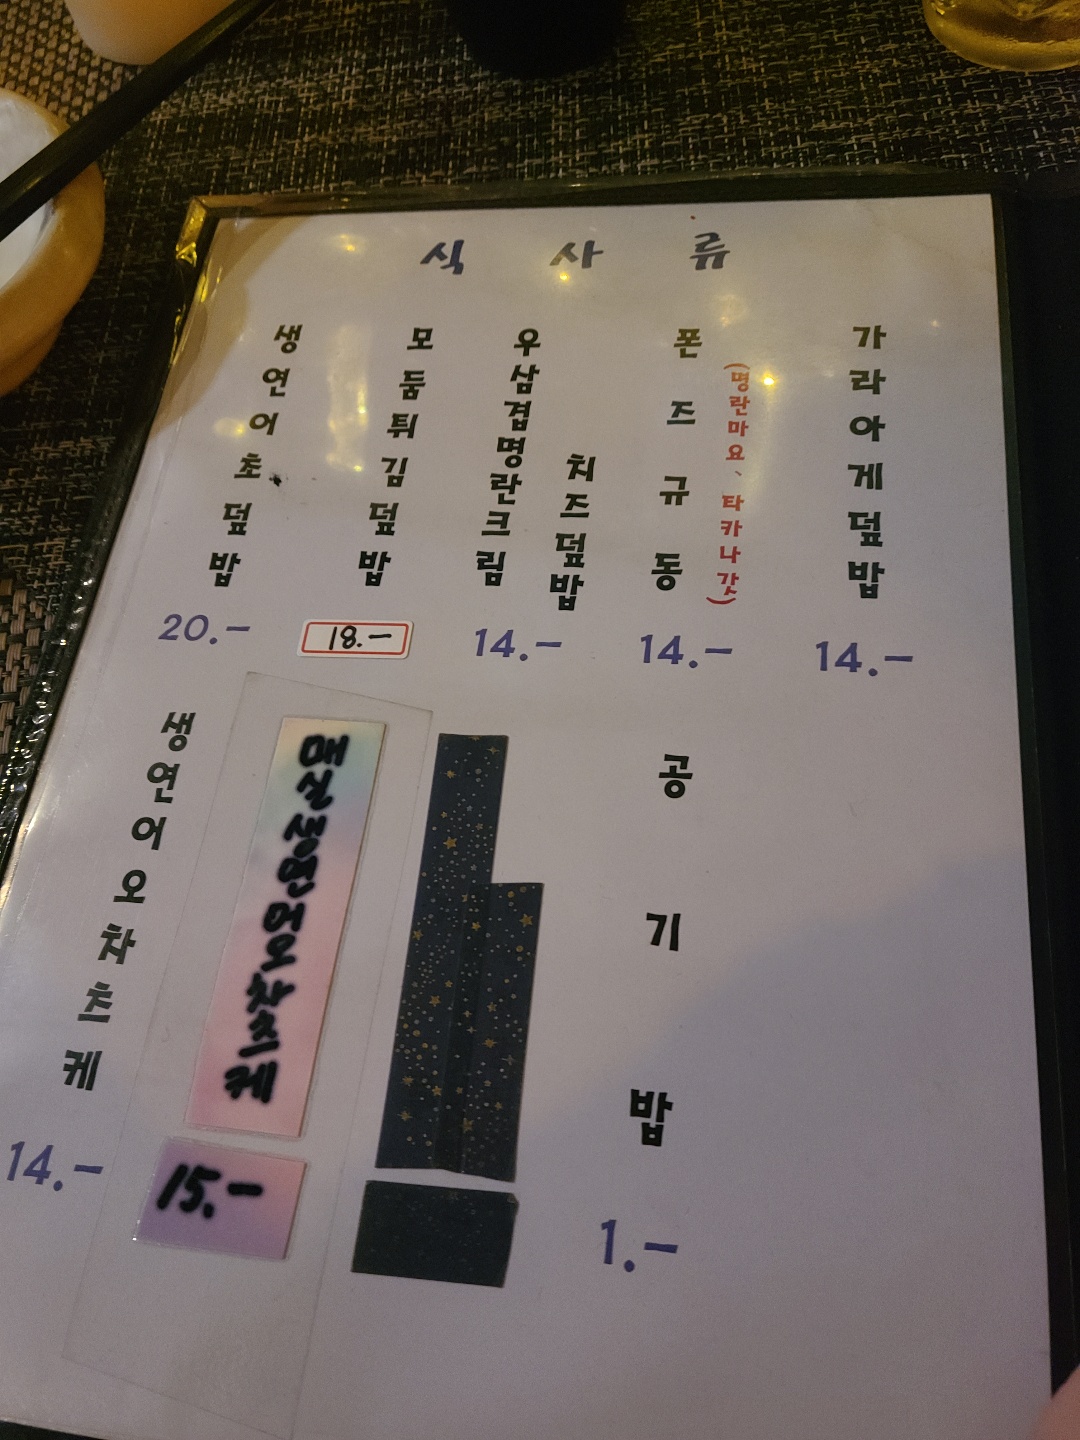 식사류
생연어초덮밥
20.-
모둠튀김덮밥
18.-
우삼겹명란크림
치즈덮밥
14.-
폰즈규동
(명란마요、타카나갓)
14.-
가라아게덮밥
14.-
생연어오차츠케
14.-
매실생연어오차츠케
15.-
공기밥
1.-